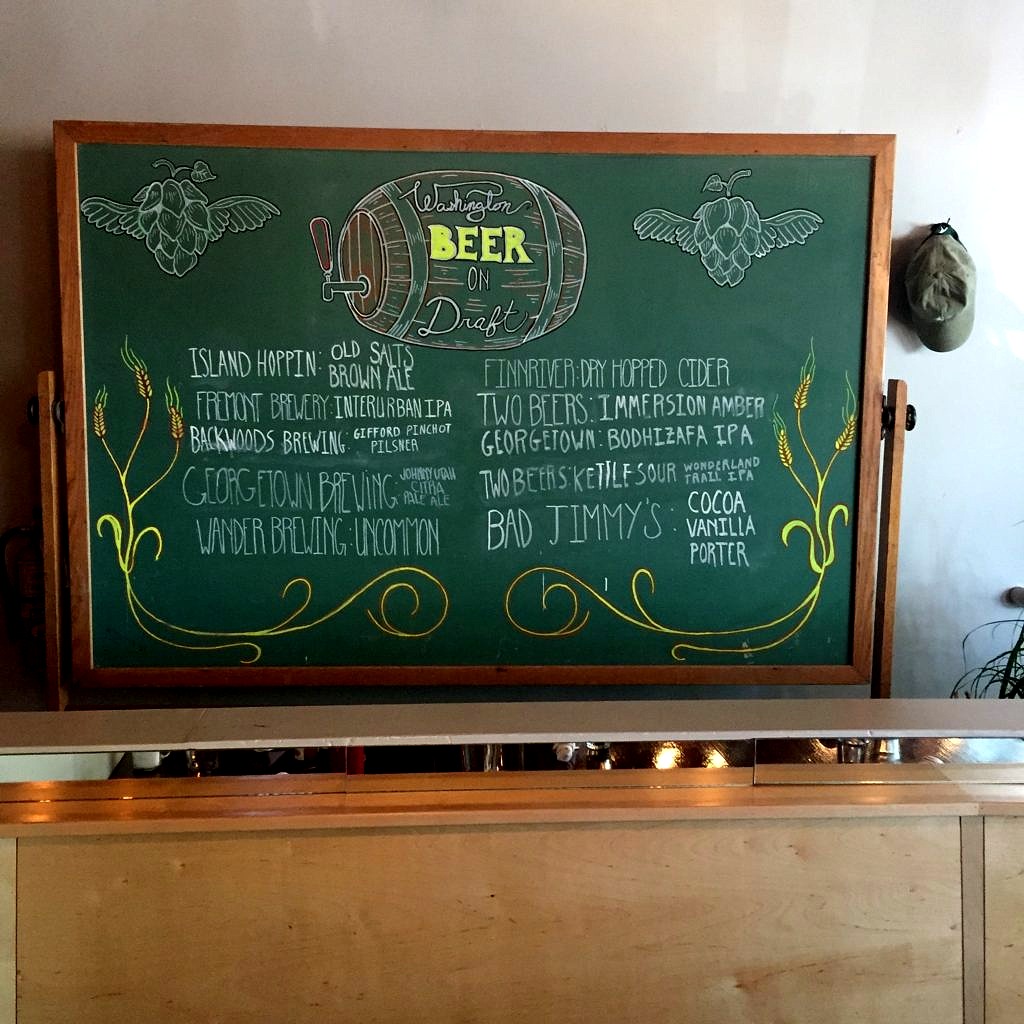 Washington
BEER
ON
Draft
ISLAND HOPPIN: OLD SALTS
BROWN ALE
FREMONT BREWERY: INTERURBAN IPA
BACKWOODS BREWING: GIFFORD PINCHOT
PILSNER
GEORGETOWN BREWING: JOHNNY UTAH
CITRA
PALE ALE
WANDER BREWING: UNCOMMON
FINNRIVER: DRY HOPPED CIDER
TWO BEERS: IMMERSION AMBER
GEORGETOWN: BODHIZAFA IPA
TWO BEERS: KETTLE SOUR WONDERLAND
TRAIL IPA
BAD JIMMY'S: COCOA
VANILLA
PORTER